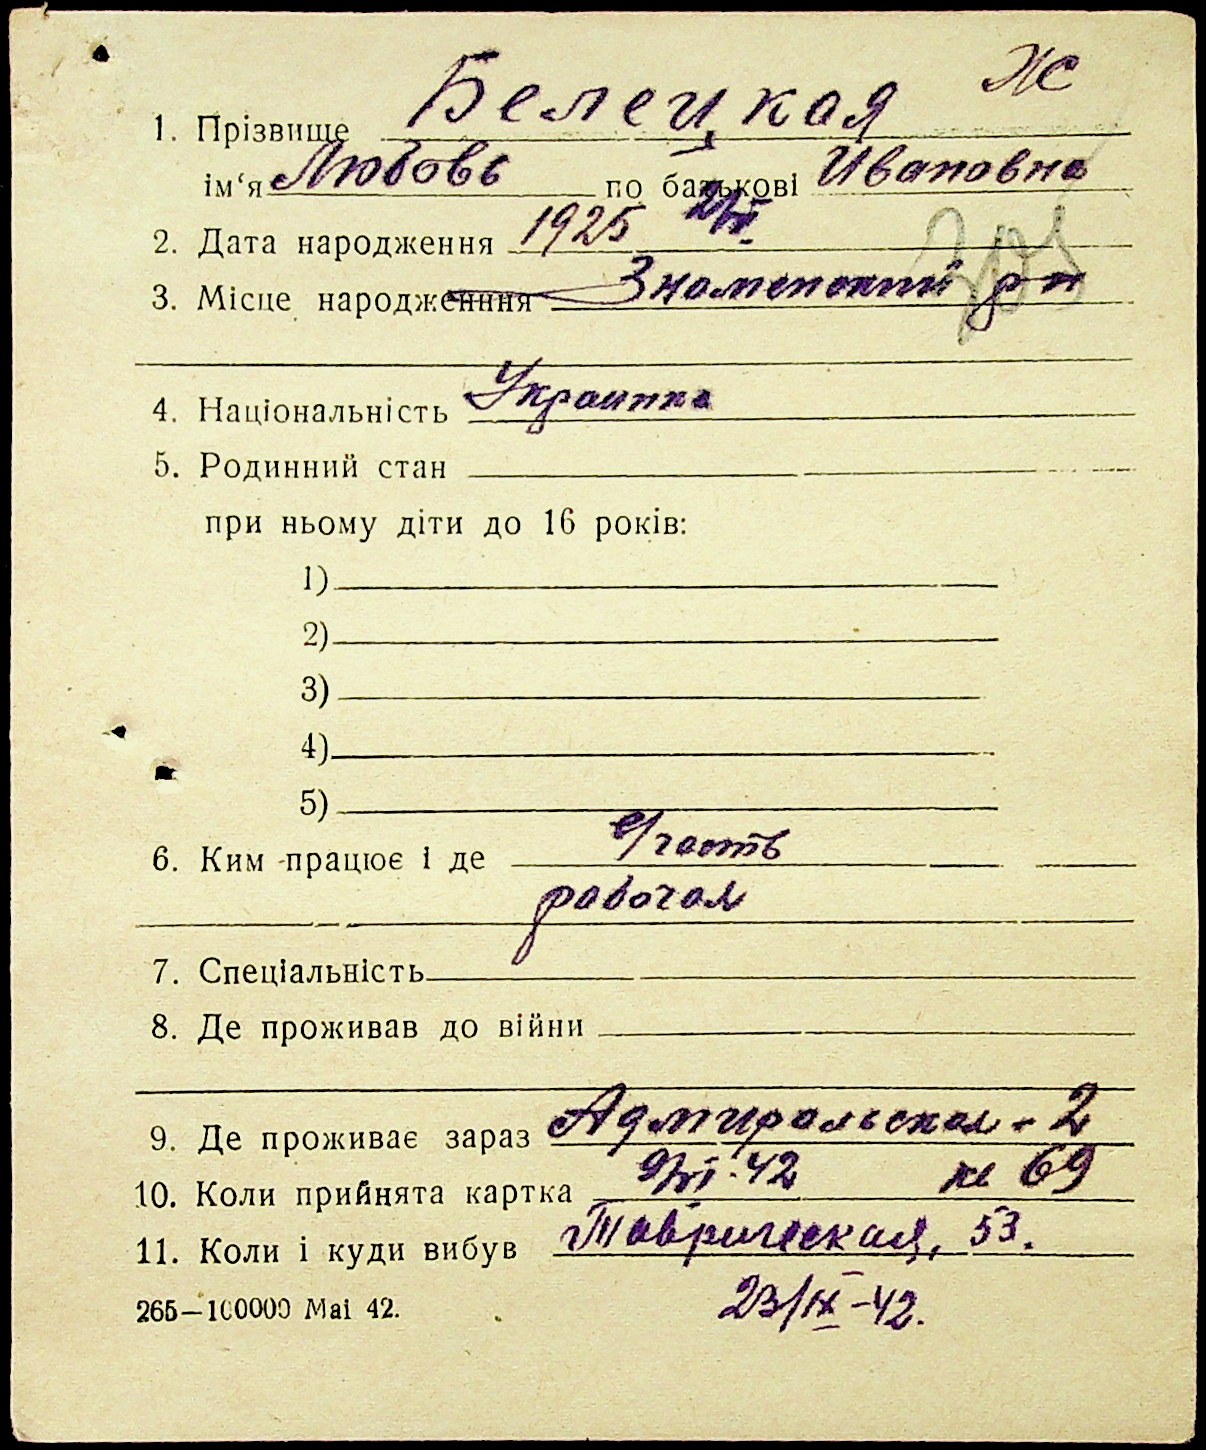 Ж
1. Прізвище Белецкая
ім‘я Любовь по батькові Ивановна
2. Дата народження 1925
3. Місце народженння Знаменский р-н
4. Національність Украинка
5. Родинний стан
при ньому діти до 16 років:
1)
2)
3)
4)
5)
6. Ким працює і де в/часть
рабочая
7. Спеціальність
8. Де проживав до війни
9. Де проживає зараз Адмиральская - 2
10. Коли прийнята картка 9/VI-42 69
11. Коли і куди вибув Таврическая, 53.
265—100000 Маі 42. 23/IX-42.